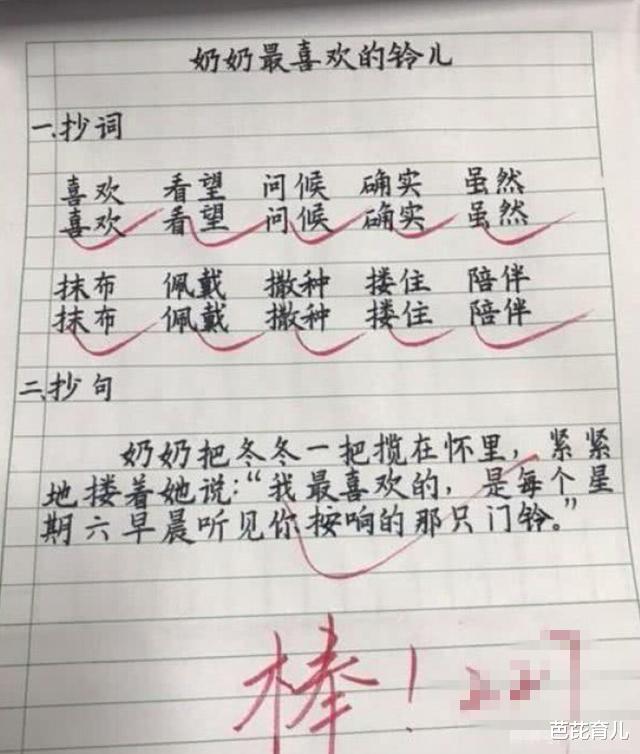 奶奶最喜欢的铃儿
一.抄词
喜欢 看望 问候 确实 虽然
喜欢 看望 问候 确实 虽然
抹布 佩戴 撒种 搂住 陪伴
抹布 佩戴 撒种 搂住 陪伴
二.抄句
奶奶把冬冬一把揽在怀里，紧紧
地搂着她说：“我最喜欢的，是每个星
期六早晨听见你按响的那只门铃。”
棒！
芭芘育儿